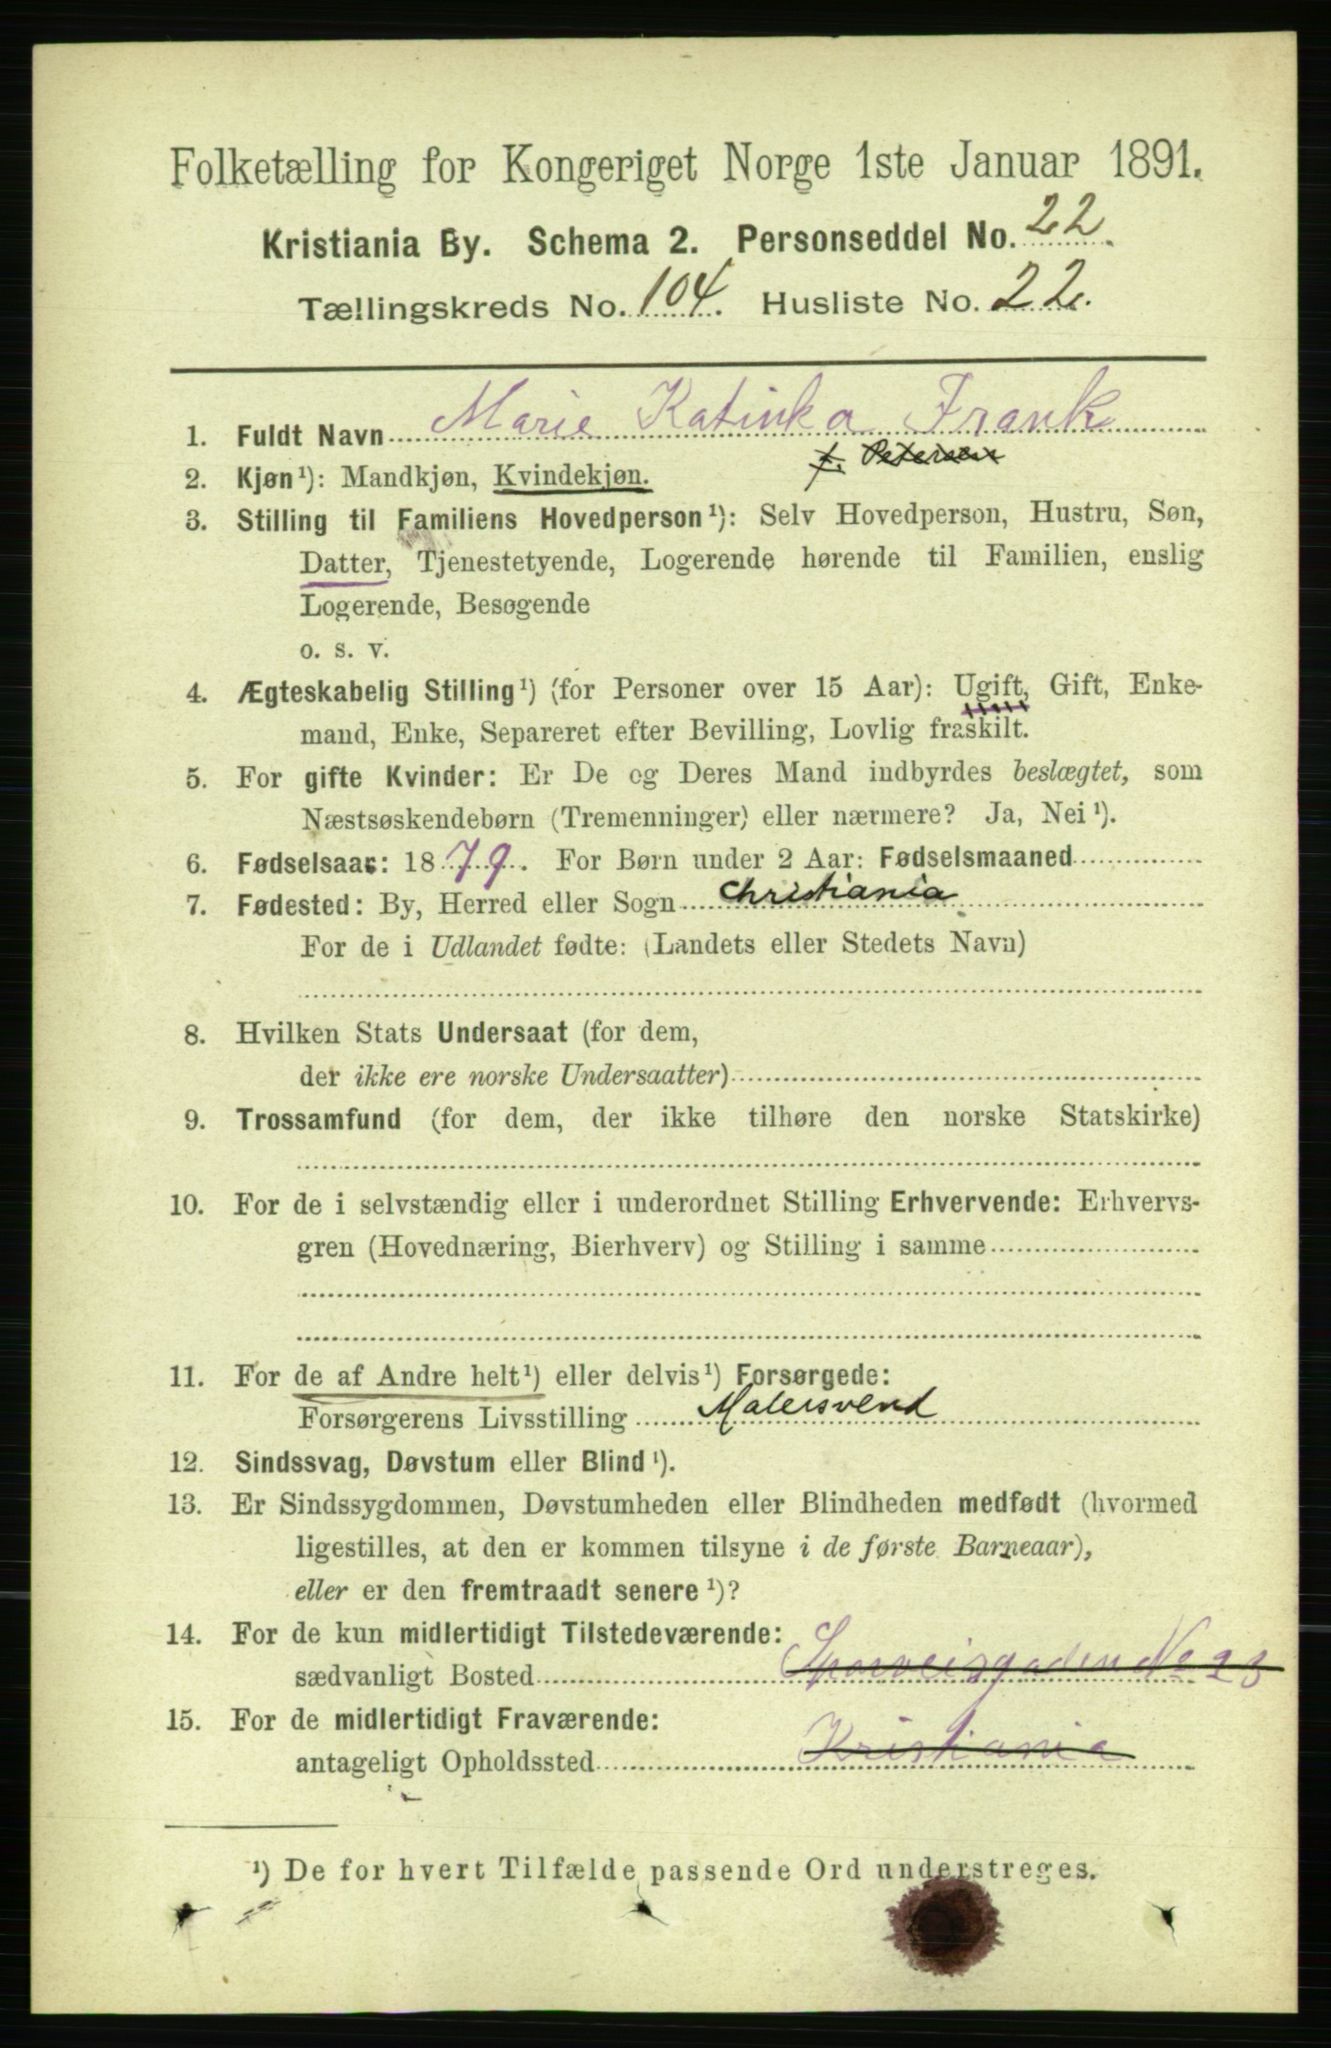 Folketælling for Kongeriget Norge 1ste Januar 1891.
Kristiania By. Schema 2. Personseddel No. 22.
Tællingskreds No. 104. Husliste No. 22.
1. Fuldt Navn Marie Katinka Frank
f. Petersen
2. Kjøn¹): Mandkjøn, Kvindekjøn.
3. Stilling til Familiens Hovedperson¹): Selv Hovedperson, Hustru, Søn,
Datter, Tjenestetyende, Logerende hørende til Familien, enslig
Logerende, Besøgende
o. s. v.
4. Ægteskabelig Stilling¹) (for Personer over 15 Aar): Ugift, Gift, Enke-
mand, Enke, Separeret efter Bevilling, Lovlig fraskilt.
5. For gifte Kvinder: Er De og Deres Mand indbyrdes beslægtet, som
Næstsøskendebørn (Tremenninger) eller nærmere? Ja, Nei¹).
6. Fødselsaar: 1879. For Børn under 2 Aar: Fødselsmaaned
7. Fødested: By, Herred eller Sogn Christiania
For de i Udlandet fødte: (Landets eller Stedets Navn)
8. Hvilken Stats Undersaat (for dem,
der ikke ere norske Undersaatter)
9. Trossamfund (for dem, der ikke tilhøre den norske Statskirke)
10. For de i selvstændig eller i underordnet Stilling Erhvervende: Erhvervs-
gren (Hovednæring, Bierhverv) og Stilling i samme
11. For de af Andre helt¹) eller delvis¹) Forsørgede:
Forsørgerens Livsstilling Malersvend
12. Sindssvag, Døvstum eller Blind¹).
13. Er Sindssygdommen, Døvstumheden eller Blindheden medfødt (hvormed
ligestilles, at den er kommen tilsyne i de første Barneaar),
eller er den fremtraadt senere¹)?
14. For de kun midlertidigt Tilstedeværende:
sædvanligt Bosted Sporveisgaden No
15. For de midlertidigt Fraværende:
antageligt Opholdssted Kristiania
¹) De for hvert Tilfælde passende Ord understreges.